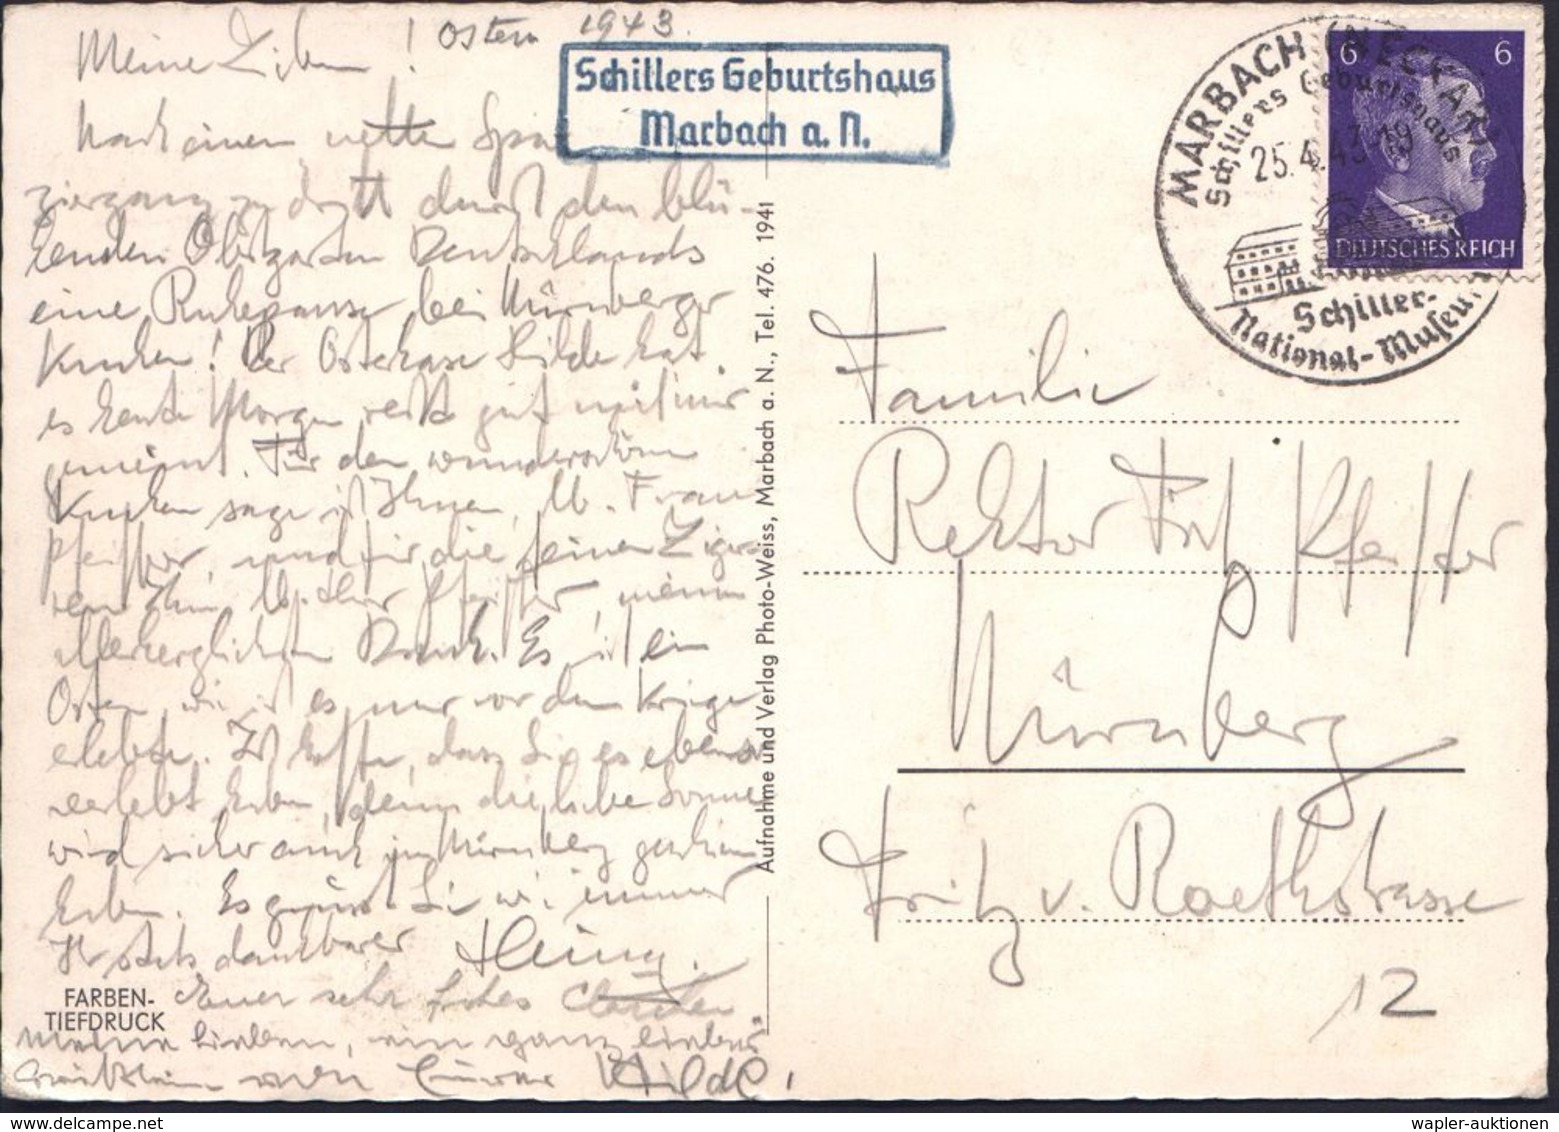 Ostern 1943.
Meine Lieben!
Nach einem netten Spa-
ziergang zu dritt durch den blü-
henden Obstgarten Deutschlands
eine Ruhepause bei Nürnberger
Kuchen! Der Osterhase Hilde hat
es heute Morgen recht gut mit mir
gemeint. Für den wunderschönen
Kuchen sage ich Ihnen, lb. Frau
Pfeiffer, und für die feinen Zigar-
ren Ihnen, lb. Herr Pfeiffer, meinen
allerherzlichsten Dank. Es ist ein
Ostern, wie ich es nur vor dem Kriege
erlebte. Ich hoffe, dass Sie es ebenso
verlebt haben, denn die liebe Sonne
wird sicher auch in Nürnberg geschienen
haben. Es grüsst Sie wie immer
Ihr stets dankbarer Heinz.
Euer sehr frohes
Meine Lieben, ein ganz liebes
von Eurer Hilde!
FARBEN-
TIEFDRUCK
Schillers Geburtshaus
Marbach a. N.
Aufnahme und Verlag Photo-Weiss, Marbach a. N., Tel. 476. 1941
MARBACH (NECKAR)
Schillers Geburtshaus
25.4.43.-19
Schiller-
National-Museum
6 6
DEUTSCHES REICH
Familie
Rektor Fritz Pfeiffer
Nürnberg
Fritz v. Roethstrasse
12
wapler-auktionen